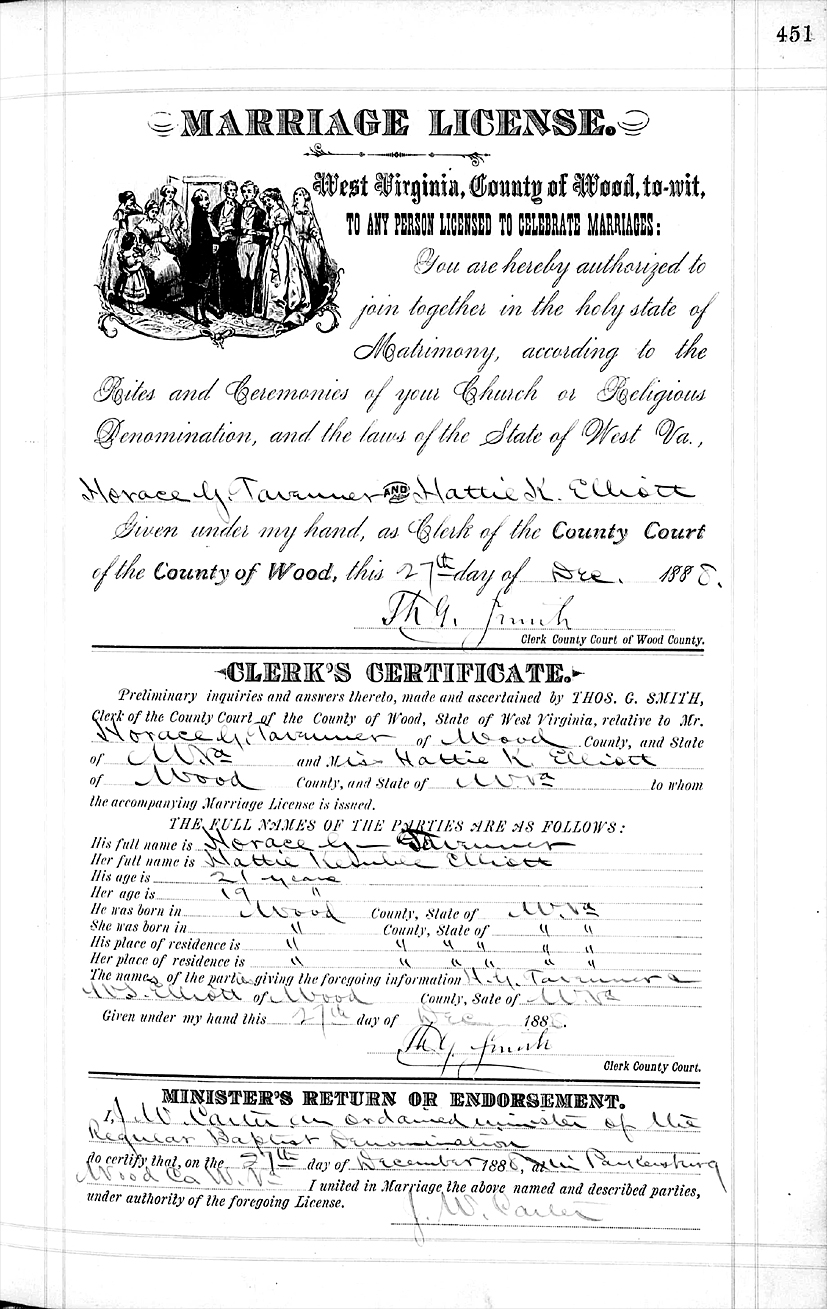 451
MARRIAGE LICENSE.
West Virginia, County of Wood, to-wit,
TO ANY PERSON LICENSED TO CELEBRATE MARRIAGES:
You are hereby authorized to
join together in the holy state of
Matrimony, according to the
Rites and Ceremonies of your Church or Religious
Denomination, and the laws of the State of West Va.,
Horace G. Tavenner AND Hattie K. Elliott
Given under my hand, as Clerk of the County Court
of the County of Wood, this 27th day of Dec. 1888.
Th G. Smith
Clerk County Court of Wood County.
CLERK'S CERTIFICATE.
Preliminary inquiries and answers thereto, made and ascertained by THOS. G. SMITH,
Clerk of the County Court of the County of Wood, State of West Virginia, relative to Mr.
Horace G. Tavenner of Wood County, and State
of W. Va and Miss Hattie K Elliott
of Wood County, and State of W Va to whom
the accompanying Marriage License is issued.
THE FULL NAMES OF THE PARTIES ARE AS FOLLOWS:
His full name is Horace G— Tavenner
Her full name is Hattie Kemble Elliott
His age is 21 years
Her age is 19 "
He was born in Wood County, State of W. Va
She was born in " County, State of " "
His place of residence is " " " " " "
Her place of residence is " " " " " "
The names of the parties giving the foregoing information H. G. Tavenner &
W S. Elliott of Wood County, Sate of W Va
Given under my hand this 27th day of Dec 1888.
Th G. Smith
Clerk County Court.
MINISTER'S RETURN OR ENDORSEMENT.
I, J. W. Carter an ordained minister of the
Regular Baptist Denomination
do certify that, on the 27th day of December 1888, at in Parkersburg
Wood Co W. Va I united in Marriage the above named and described parties,
under authority of the foregoing License.
J. W. Carter